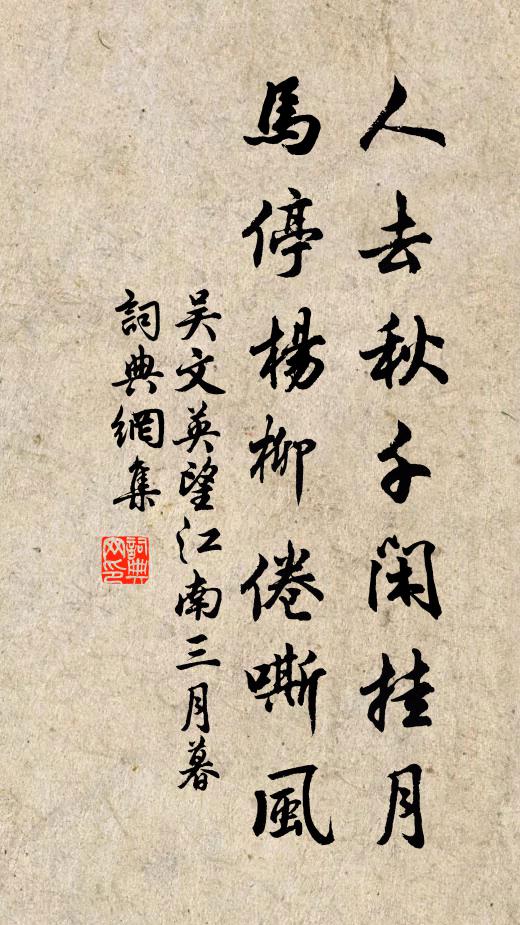 人去秋千闲挂月
馬停楊柳倦嘶風
吴文英望江南三月暮
詞典網集
詞典网印